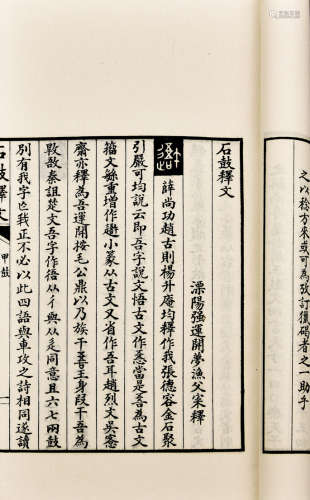 之以稔方來或可為攷訂獵碣者之一助乎
石鼓釋文
溧陽強運開夢漁父宷釋
薛尚功趙古則楊升庵均釋作我張德容金石聚
引嚴可均說云即吾字說文悟古文作㤳當是𠮣為古文
籀文緐重增作䢩小篆从古文又省作吾耳趙烈文吳愙
齋亦釋為吾運開按毛公鼎以乃族干吾王身叚干吾為
敔秦詛楚文吾字作𢓲从彳與从辵同意且六七兩鼓
別有我字則我正不必以此四語與車攻之詩相同遂讀
石鼓釋文 甲鼓 一